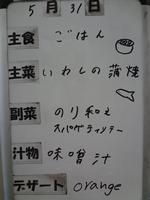 5月31日
主食 ごはん
主菜 いわしの蒲焼
副菜 のり和え
スパゲティソテー
汁物 味噌汁
デザート orange